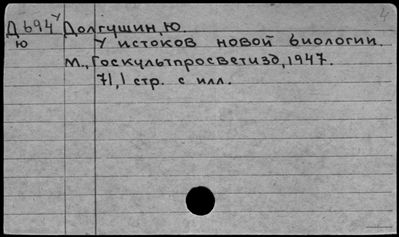 Д694у Долгушин, Ю.
ю У истоков новой биологии.
М., Госкультпросветизд, 1947.
71,1 стр. с илл.
4